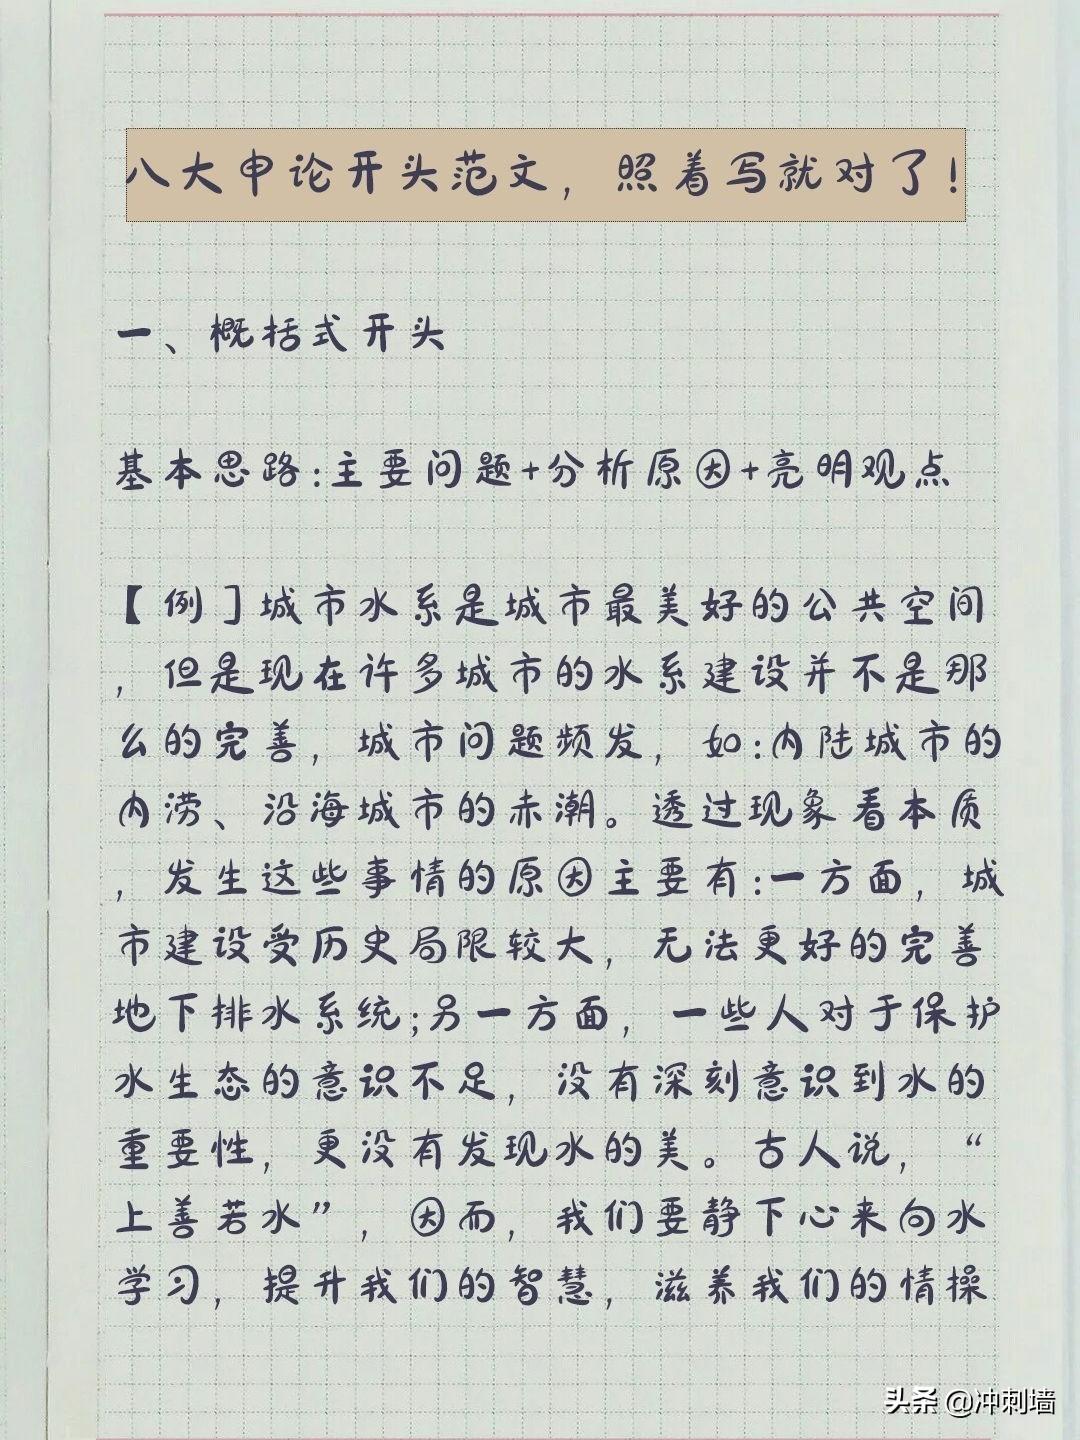 八大申论开头范文，照着写就对了！
一、概括式开头
基本思路:主要问题+分析原因+亮明观点
【例】城市水系是城市最美好的公共空间
，但是现在许多城市的水系建设并不是那
么的完善，城市问题频发，如:内陆城市的
内涝、沿海城市的赤潮。透过现象看本质
，发生这些事情的原因主要有:一方面，城
市建设受历史局限较大，无法更好的完善
地下排水系统;另一方面，一些人对于保护
水生态的意识不足，没有深刻意识到水的
重要性，更没有发现水的美。古人说，“
上善若水”，因而，我们要静下心来向水
学习，提升我们的智慧，滋养我们的情操
头条 @冲刺墙